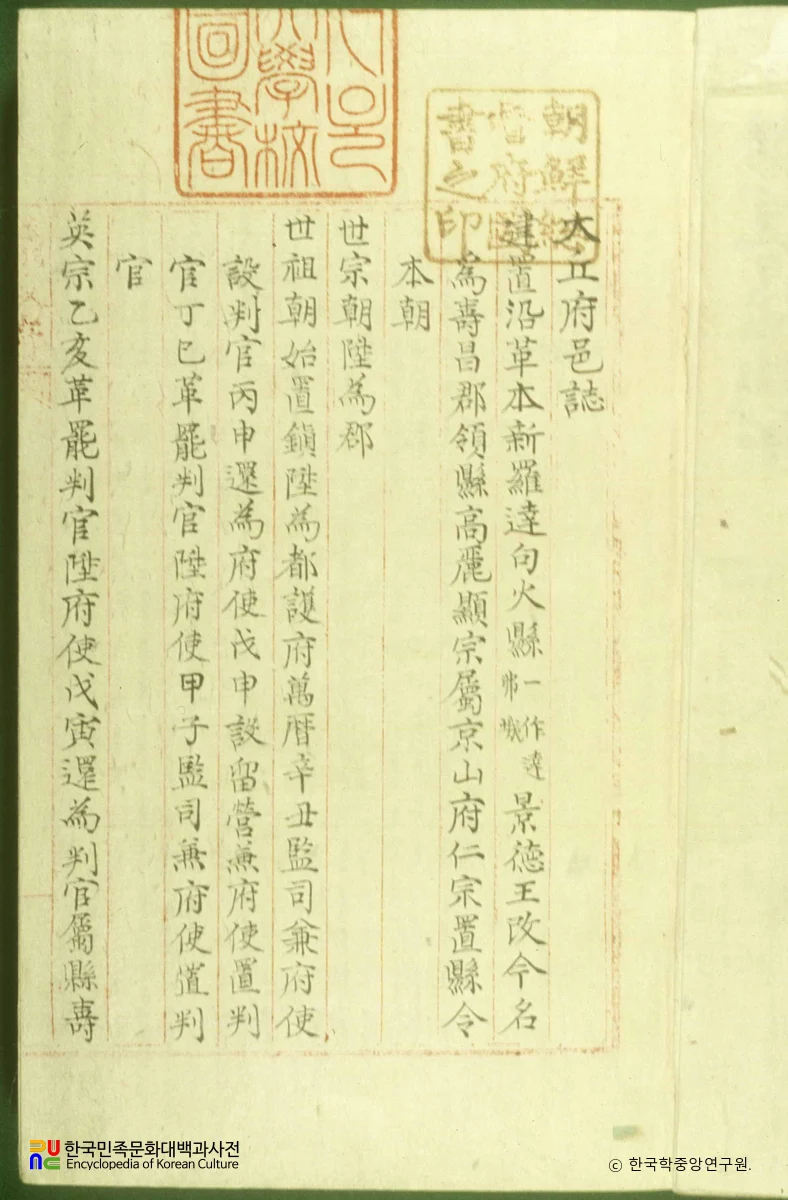 大丘府邑誌
建置沿革本新羅達句火縣一作達弗城景德王改今名
為壽昌郡領縣高麗顯宗屬京山府仁宗置縣令
本朝
世宗朝陞為郡
世祖朝始置鎭陞為都護府萬曆辛丑監司兼府使
設判官丙申還為府使戊申設留營兼府使置判
官丁巳革罷判官陞府使甲子監司兼府使置判
官
英宗乙亥革罷判官陞府使戊寅還為判官屬縣壽
朝鮮總
督府圖
書之印
大學校
圖書
한국민족문화대백과사전
Encyclopedia of Korean Culture
© 한국학중앙연구원.